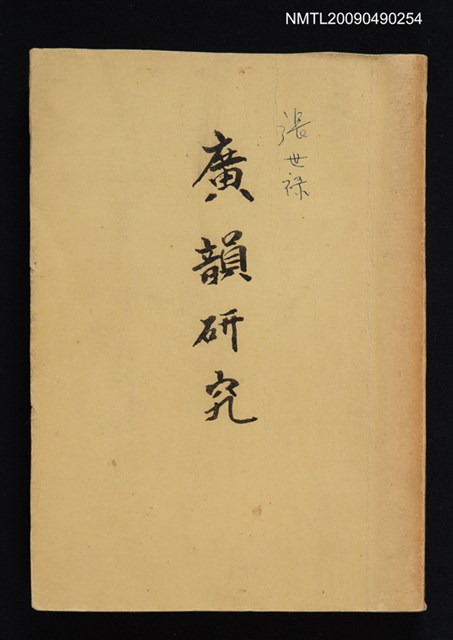 NMTL20090490254
張世祿
廣韻研究